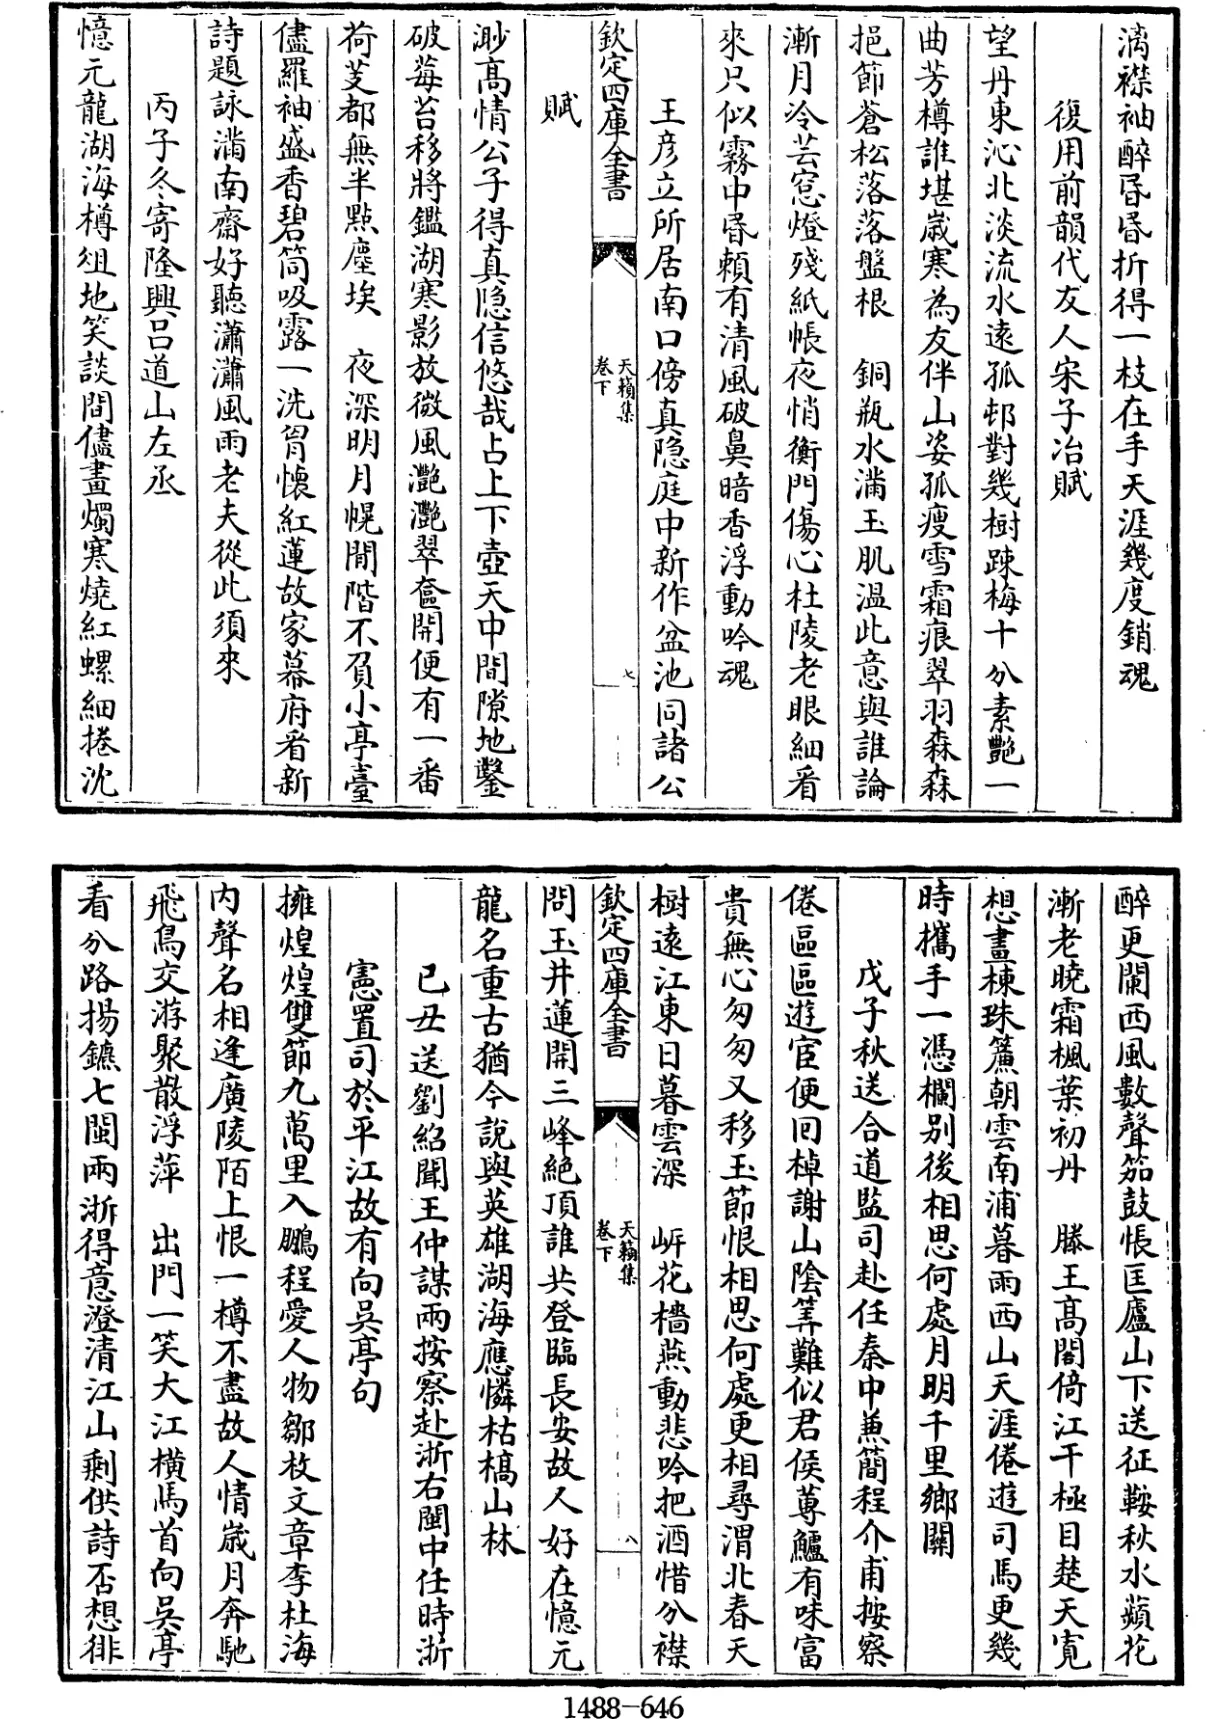 漓襟袖醉昏昏折得一枝在手天涯幾度銷魂
復用前韻代友人宋子冶賦
望丹東沁北淡流水遶孤邨對幾樹踈梅十分素艷一
曲芳樽誰堪嵗寒為友伴山姿孤瘦雪霜痕翠羽森森
挹節蒼松落落盤根　銅瓶水滿玉肌温此意與誰論
漸月冷芸窓燈殘紙帳夜悄衡門傷心杜陵老眼細看
來只似霧中昏頼有清風破鼻暗香浮動吟魂
王彦立所居南口傍真隠庭中新作盆池同諸公
欽定四庫全書
天籟集
卷下
七
賦
渺髙情公子得真隠信悠哉占上下壺天中間隙地鑿
破莓苔移將鑑湖寒影放微風灔灔翠奩開便有一番
荷芰都無半點塵埃　夜深明月幌間階不負小亭臺
儘羅袖盛香碧筒吸露一洗胷懷紅蓮故家幕府看新
詩題詠滿南齋好聽瀟瀟風雨老夫從此須來
丙子冬寄隆興吕道山左丞
憶元龍湖海樽俎地笑談間儘畫燭寒燒紅螺細捲沈
醉更闌西風數聲笳鼓悵匡廬山下送征鞍秋水蘋花
漸老曉霜楓葉初丹　滕王髙閣倚江干極目楚天寛
想畫棟珠簾朝雲南浦暮雨西山天涯倦遊司馬更幾
時攜手一憑欄别後相思何處月明千里鄉闗
戊子秋送合道監司赴任秦中兼簡程介甫按察
倦區區遊宦便回棹謝山隂筭難似君侯蓴鱸有味富
貴無心匆匆又移玉節恨相思何處更相尋渭北春天
樹遠江東日暮雲深　㟁花檣燕動悲吟把酒惜分襟
欽定四庫全書
天籟集
卷下
八
問玉井蓮開三峰絶頂誰共登臨長安故人好在憶元
龍名重古猶今說與英雄湖海應憐枯槁山林
已丑送劉紹聞王仲謀兩按察赴浙右閩中任時浙
憲置司於平江故有向吳亭句
擁煌煌雙節九萬里入鵬程愛人物鄒枚文章李杜海
内聲名相逢廣陵陌上恨一樽不盡故人情嵗月奔馳
飛鳥交游聚散浮萍　出門一笑大江横馬首向吳亭
看分路揚鑣七閩兩浙得意澄清江山剩供詩否想徘
1488-646